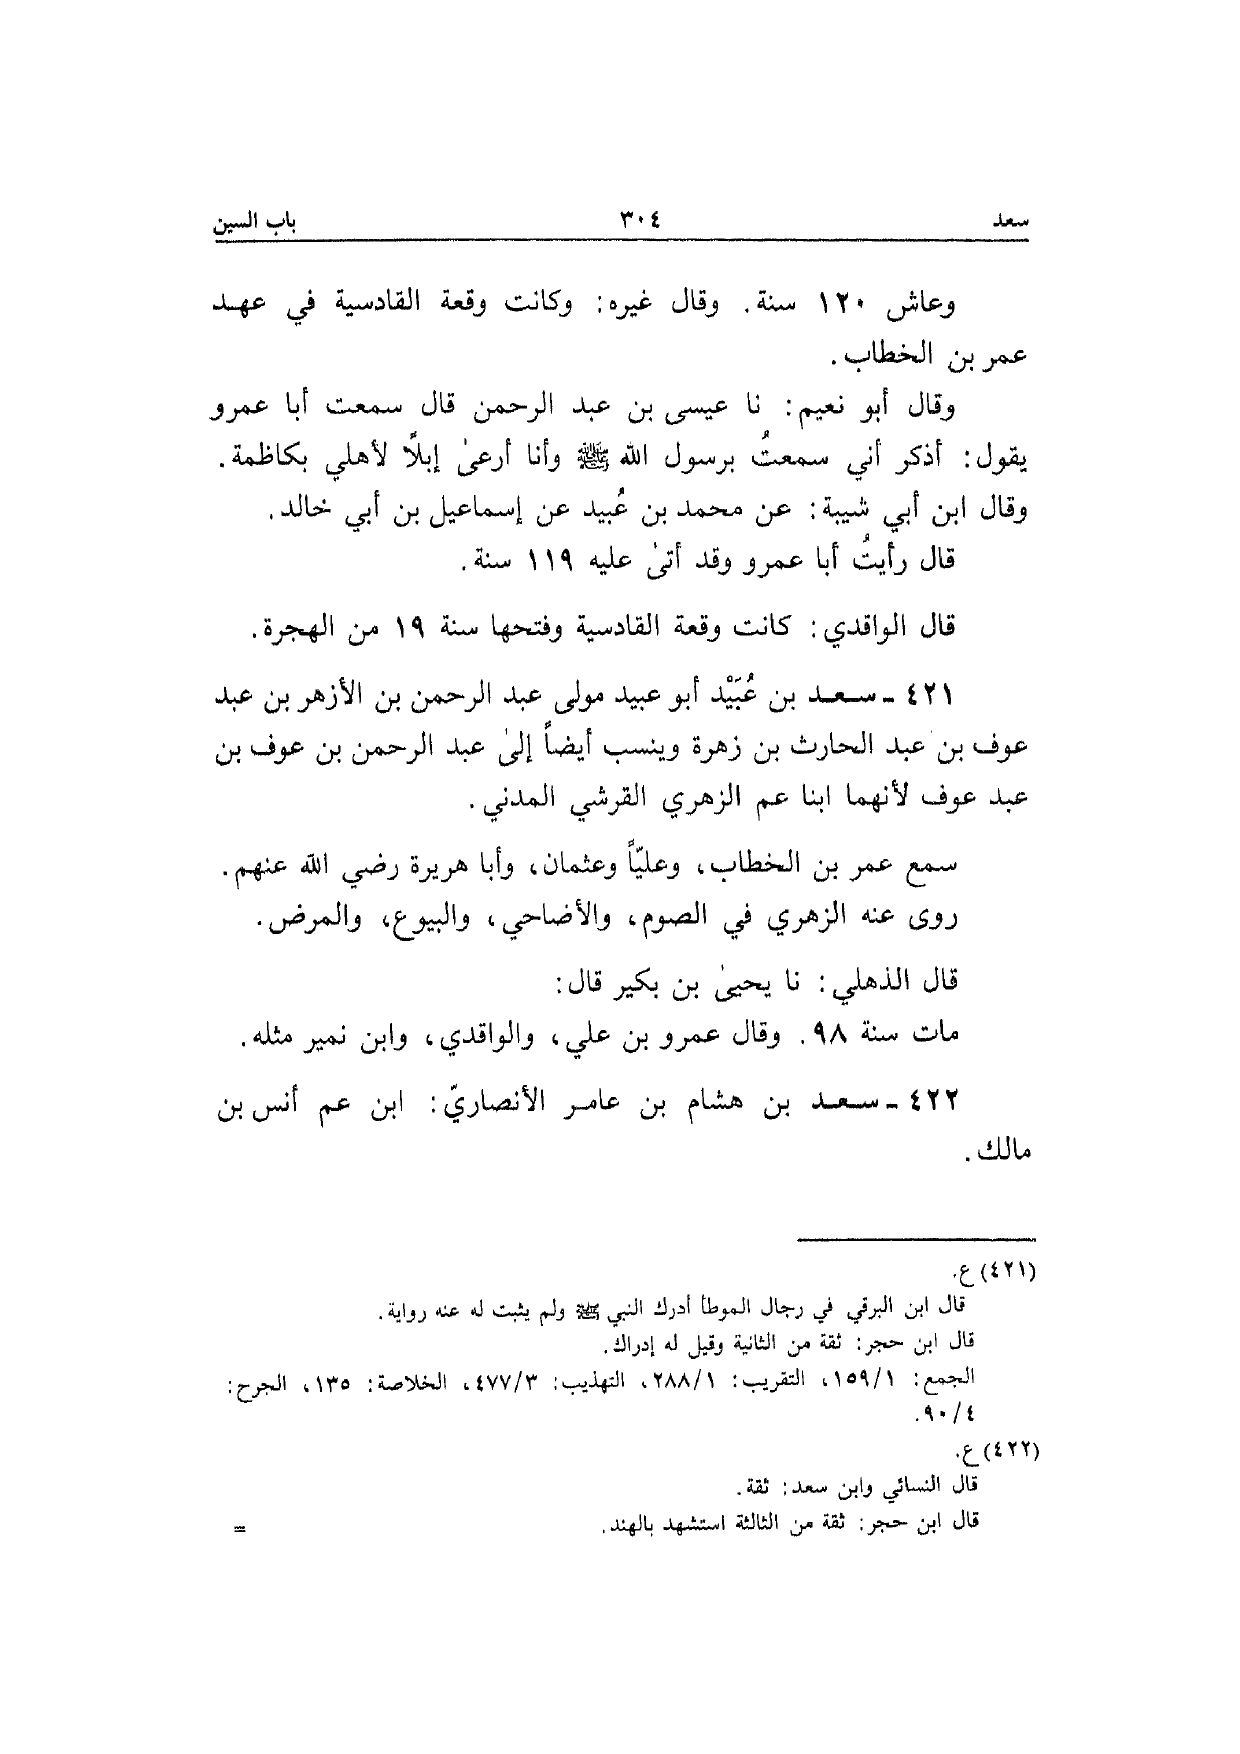 سعد ٣٠٤ باب السين
وعاش ١٢٠ سنة. وقال غيره: وكانت وقعة القادسية في عهد
عمر بن الخطاب.
وقال أبو نعيم: نا عيسى بن عبد الرحمن قال سمعت أبا عمرو
يقول: أذكر أني سمعتُ برسول الله ﷺ وأنا أرعىٰ إبلًا لأهلي بكاظمة.
وقال ابن أبي شيبة: عن محمد بن عُبيد عن إسماعيل بن أبي خالد.
قال رأيتُ أبا عمرو وقد أتىٰ عليه ١١٩ سنة.
قال الواقدي: كانت وقعة القادسية وفتحها سنة ١٩ من الهجرة.
٤٢١ ـ سعد بن عُبَيْد أبو عبيد مولى عبد الرحمن بن الأزهر بن عبد
عوف بن عبد الحارث بن زهرة وينسب أيضاً إلىٰ عبد الرحمن بن عوف بن
عبد عوف لأنهما ابنا عم الزهري القرشي المدني.
سمع عمر بن الخطاب، وعليّاً وعثمان، وأبا هريرة رضي الله عنهم.
روى عنه الزهري في الصوم، والأضاحي، والبيوع، والمرض.
قال الذهلي: نا يحيىٰ بن بكير قال:
مات سنة ٩٨. وقال عمرو بن علي، والواقدي، وابن نمير مثله.
٤٢٢ ـ سعد بن هشام بن عامر الأنصاريّ: ابن عم أنس بن
مالك.
(٤٢١) ع.
قال ابن البرقي في رجال الموطأ أدرك النبي ﷺ ولم يثبت له عنه رواية.
قال ابن حجر: ثقة من الثانية وقيل له إدراك.
الجمع: ١/١٥٩، التقريب: ١/٢٨٨، التهذيب: ٣/٤٧٧، الخلاصة: ١٣٥، الجرح:
٤/٩٠.
(٤٢٢) ع.
قال النسائي وابن سعد: ثقة.
قال ابن حجر: ثقة من الثالثة استشهد بالهند. =